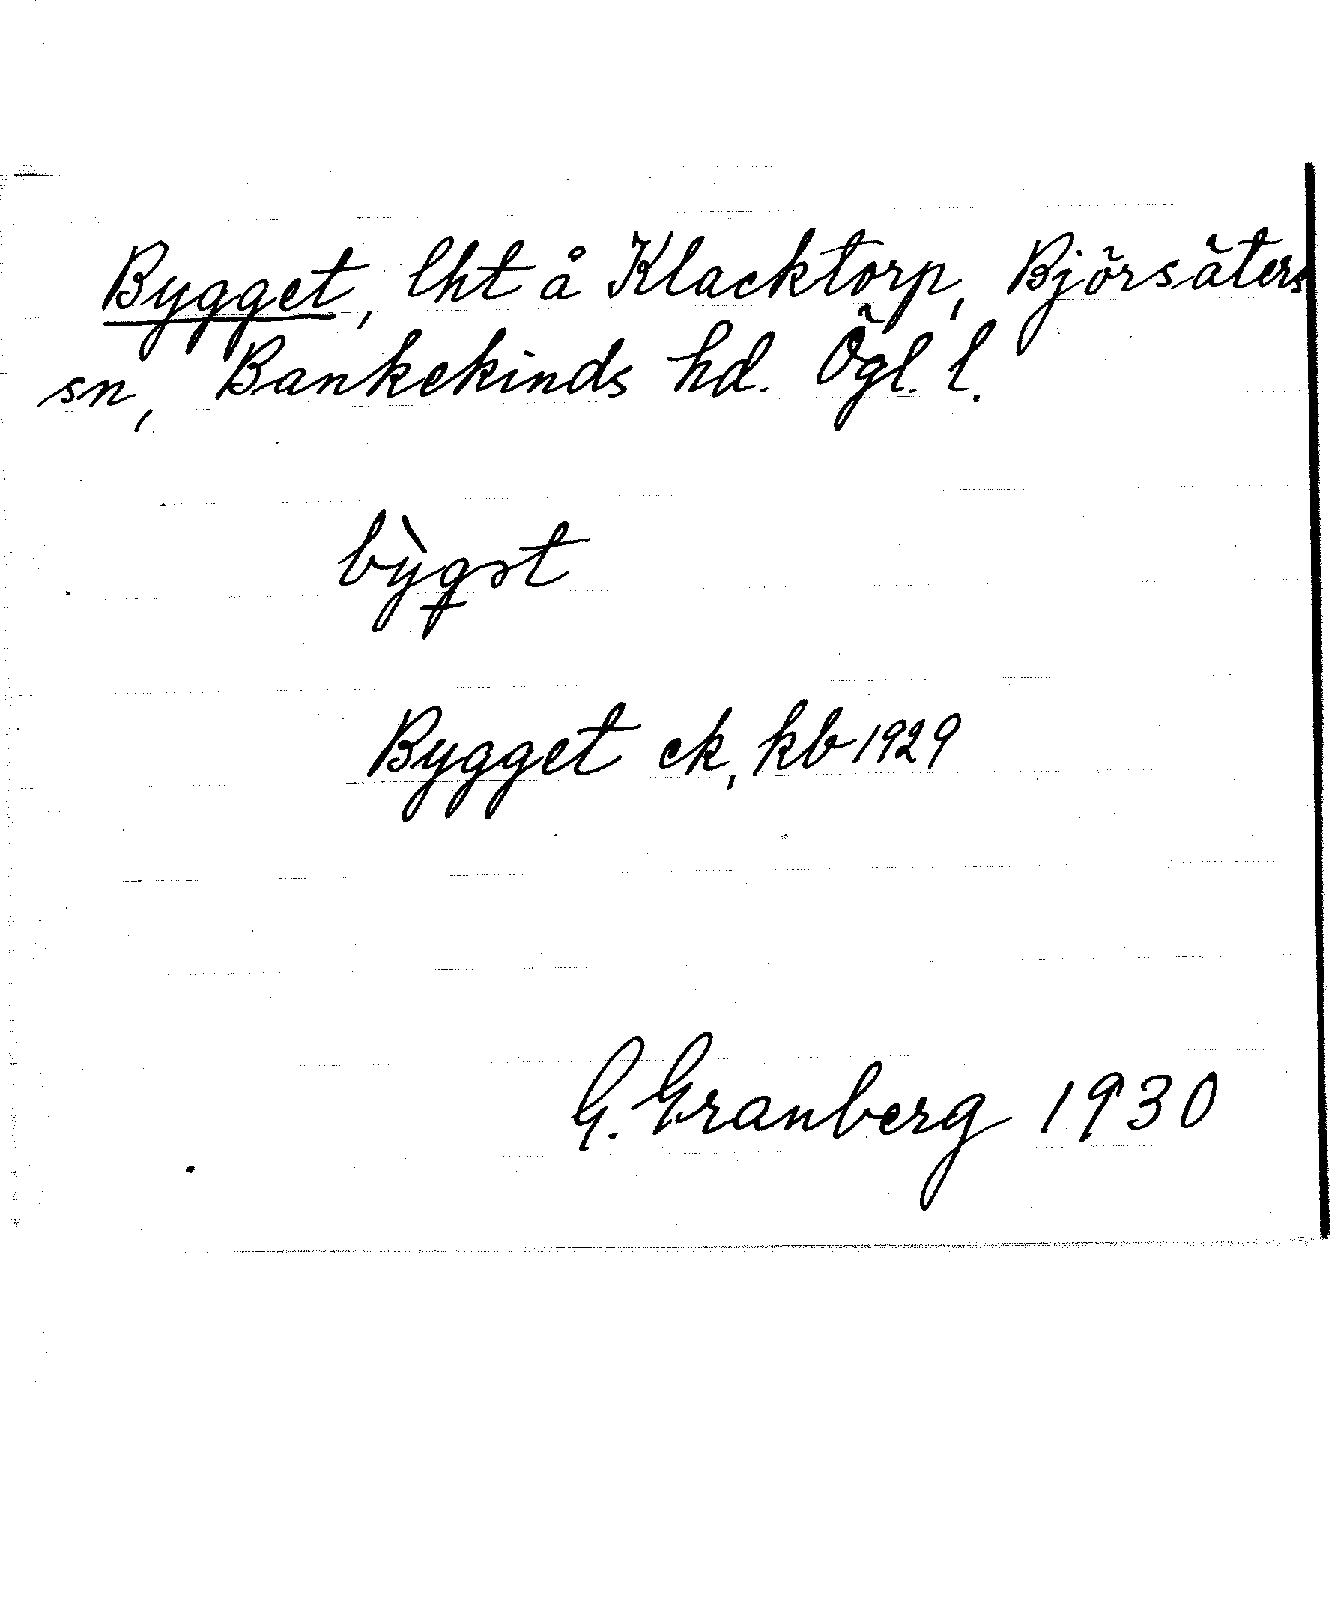 Bygget, lht å Klacktorp, Björsäters
sn, Bankekinds hd. Ögl. l.
bỳgət
Bygget ek, kb 1929
G. Granberg 1930